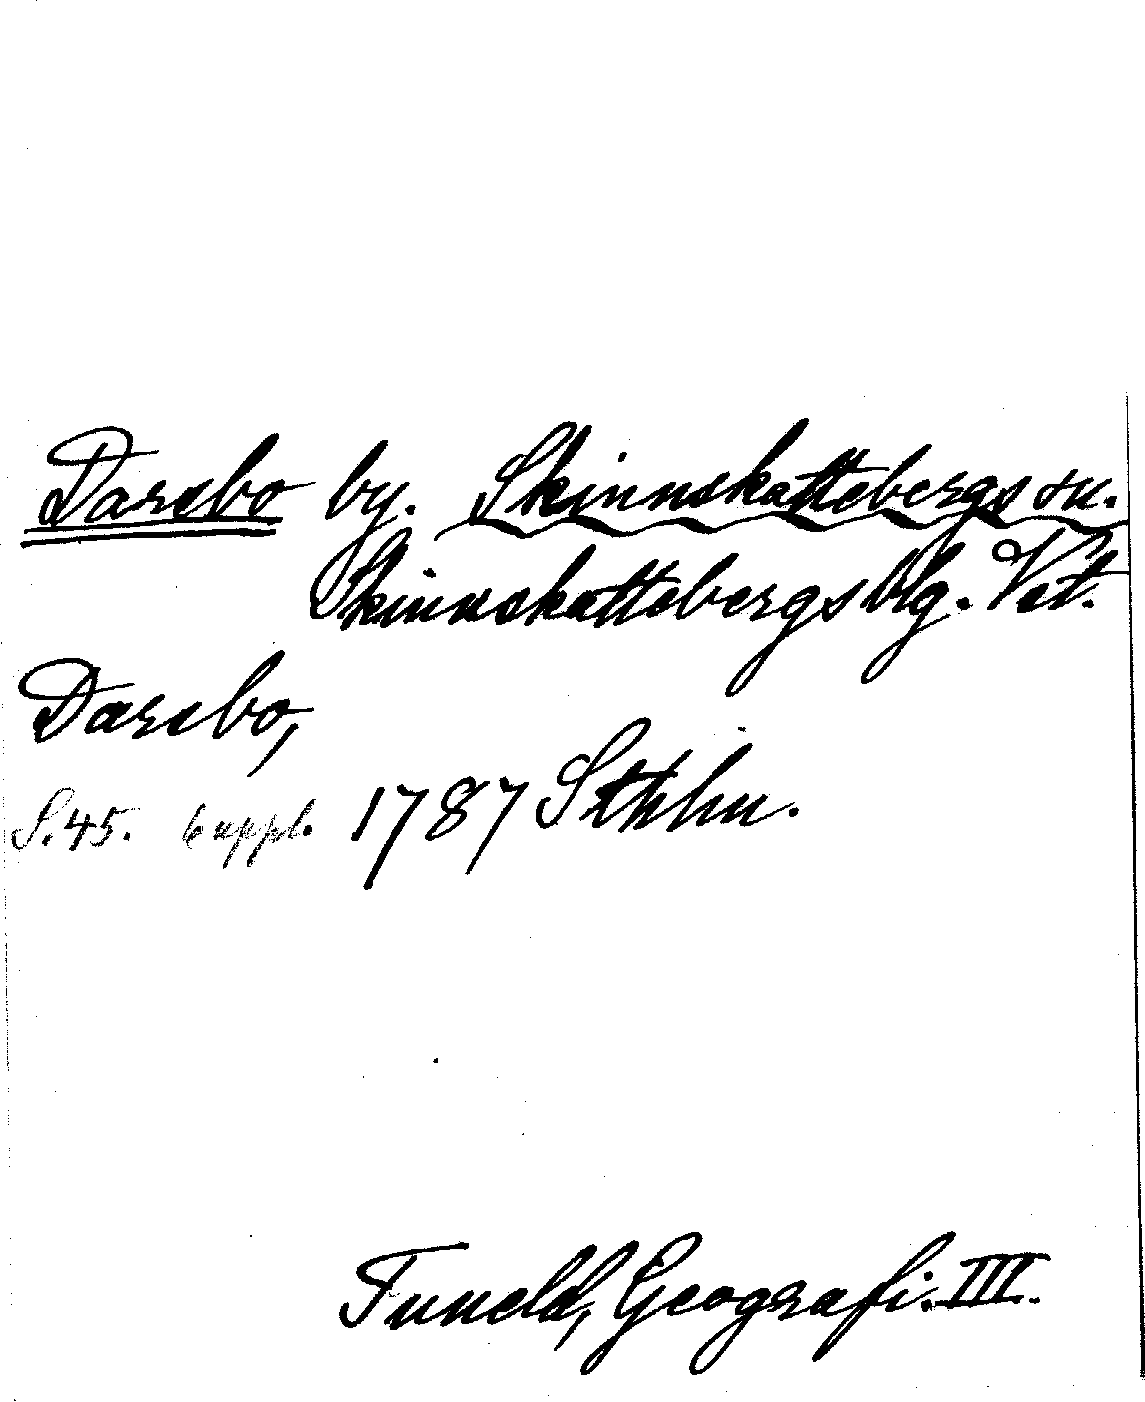 Darsbo by. Skinnskattebergs sn.
Skinnskattebergs blg. Vst.
Darsbo,
S. 45. 6 uppl. 1787 Sthlm.
Tuneld, Geografi. III.